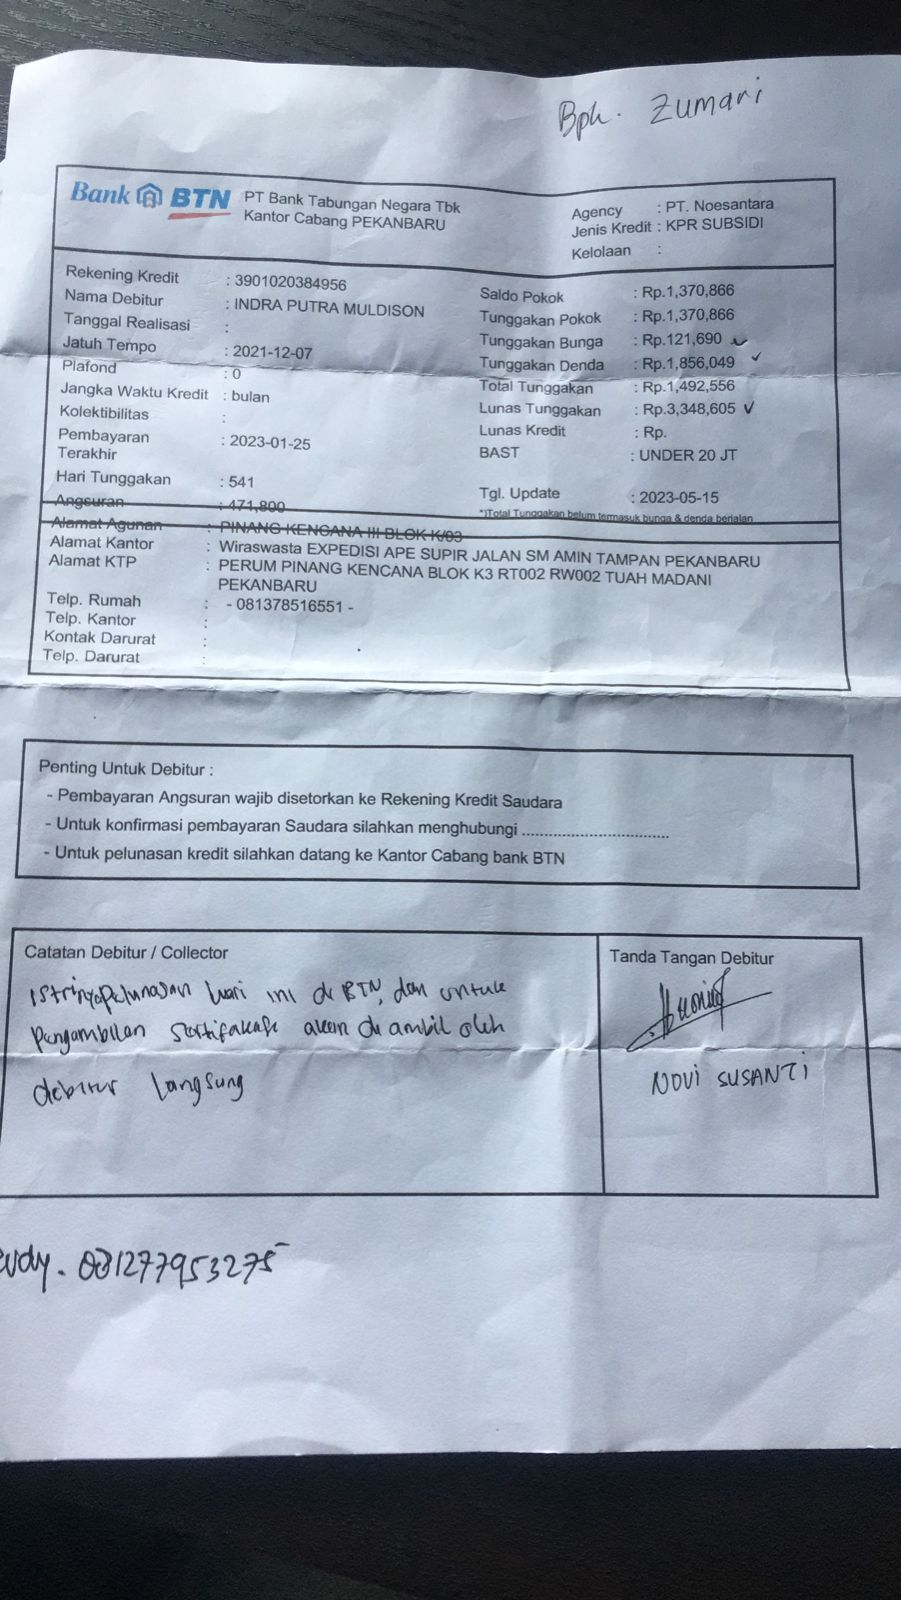 Bpk. Zumari
Bank BTN PT Bank Tabungan Negara Tbk
Kantor Cabang PEKANBARU
Agency : PT. Noesantara
Jenis Kredit : KPR SUBSIDI
Kelolaan :
Rekening Kredit : 3901020384956
Nama Debitur : INDRA PUTRA MULDISON
Tanggal Realisasi :
Jatuh Tempo : 2021-12-07
Plafond : 0
Jangka Waktu Kredit : bulan
Kolektibilitas :
Pembayaran Terakhir : 2023-01-25
Hari Tunggakan : 541
Angsuran : 471,800
Saldo Pokok : Rp.1,370,866
Tunggakan Pokok : Rp.1,370,866
Tunggakan Bunga : Rp.121,690
Tunggakan Denda : Rp.1,856,049
Total Tunggakan : Rp.1,492,556
Lunas Tunggakan : Rp.3,348,605
Lunas Kredit : Rp.
BAST : UNDER 20 JT
Tgl. Update : 2023-05-15
*)Total Tunggakan belum termasuk bunga & denda berjalan
Alamat Agunan : PINANG KENCANA III BLOK K/03
Alamat Kantor : Wiraswasta EXPEDISI APE SUPIR JALAN SM AMIN TAMPAN PEKANBARU
Alamat KTP : PERUM PINANG KENCANA BLOK K3 RT002 RW002 TUAH MADANI
PEKANBARU
Telp. Rumah : - 081378516551 -
Telp. Kantor :
Kontak Darurat :
Telp. Darurat :
Penting Untuk Debitur :
- Pembayaran Angsuran wajib disetorkan ke Rekening Kredit Saudara
- Untuk konfirmasi pembayaran Saudara silahkan menghubungi ................................
- Untuk pelunasan kredit silahkan datang ke Kantor Cabang bank BTN
Catatan Debitur / Collector
Istrinya pelunasan hari ini di BTN, dan untuk
pengambilan sertifakat akan di ambil oleh
debitur langsung
Tanda Tangan Debitur
NOVI SUSANTI
081277953275